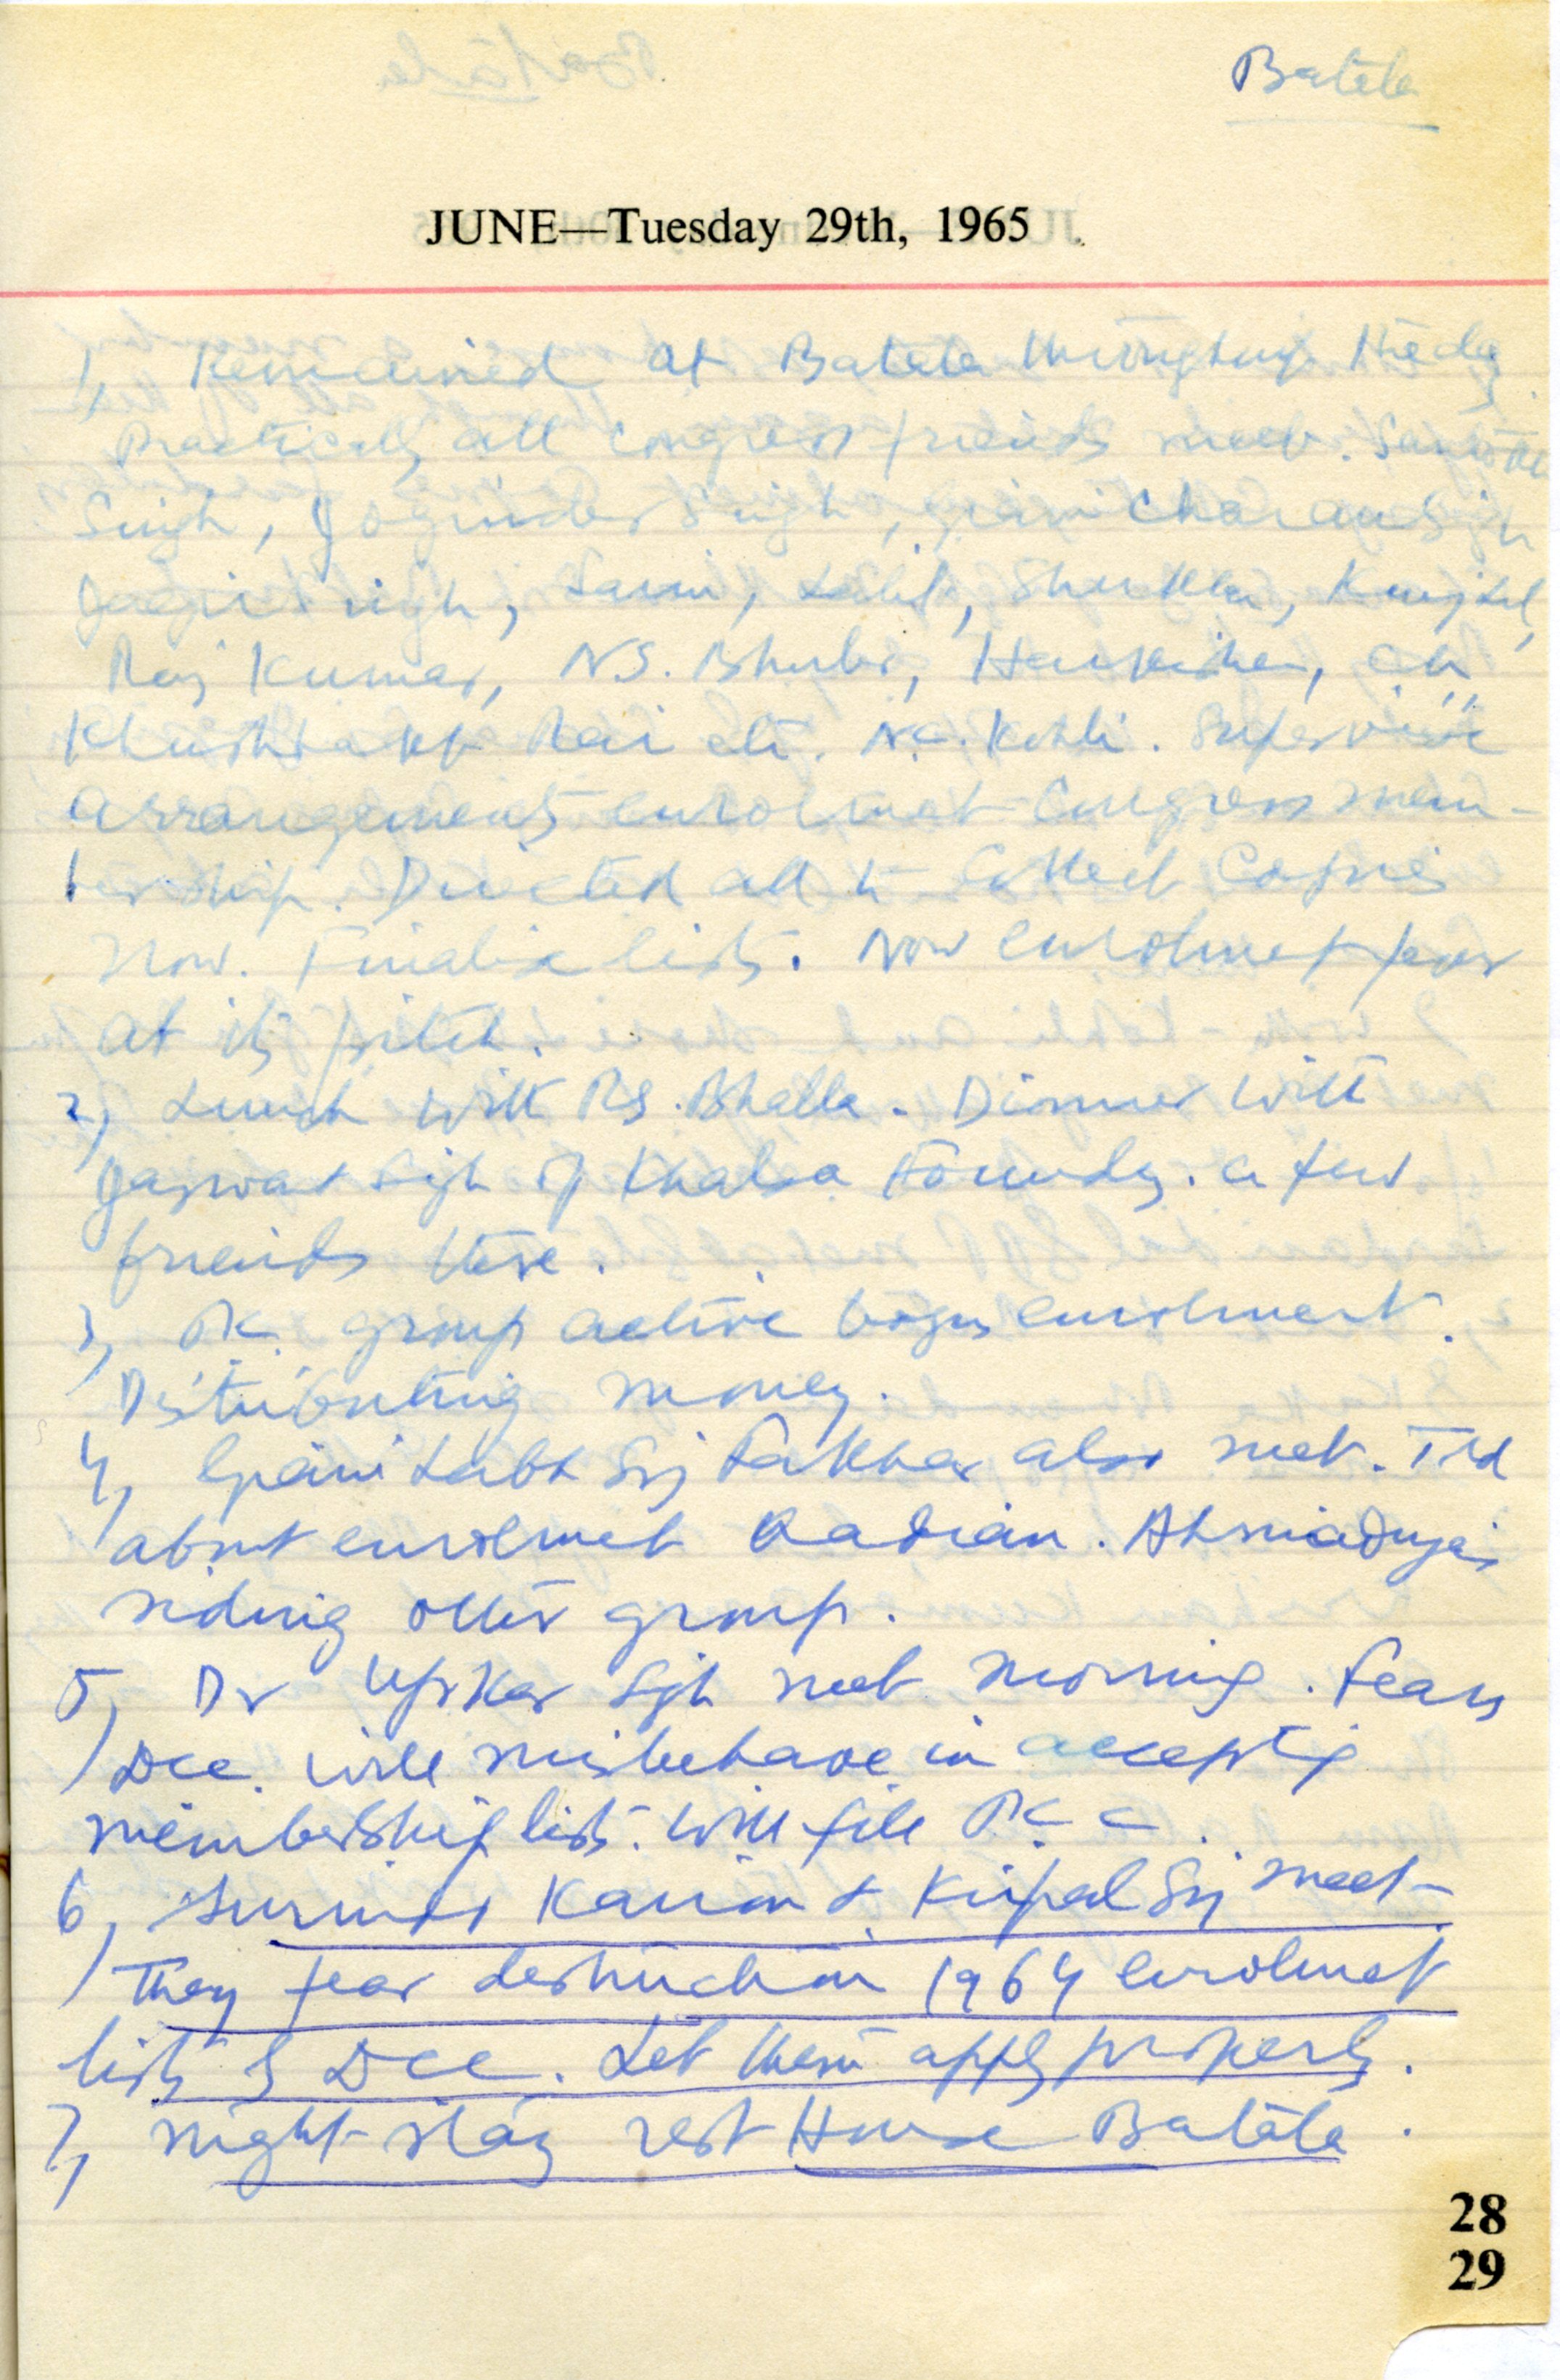 Batala
JUNE—Tuesday 29th, 1965
1, Remained at Batala throughout the day.
Practically all Congress friends meet. Santokh
Singh, Joginder Singh, Giani Charan Singh
Jagir Singh, Saini, Shukla,
Raj Kumar, N.S. Harkishen,
Rai etc. N.C. Kohli. Supervise
arrangements enrolment Congress mem-
bership. Directed all to collect Copies
now. Finalise lists. Now enrolment fever
at its pitch.
2, Lunch with R.S. Bhalla. Dinner with
Jaswant Sigh of Khalsa Foundry. a few
friends there.
3, P.K. group active bogus enrolment.
Distributing money.
4, Giani Labh Sij Fakhar also met. Told
about enrolment Qadian. Ahmadiyas
siding other group.
5, Dr Upkar Sigh meet morning. Fears
Dcc. will misbehave in accepting
membership lists. Will file P.C.C.
6, Surinder Kairon & Kirpal Sij meet-
They fear destruction 1964 enrolment
lists by Dcc. Let them apply properly.
7, Night stay rest House Batala.
28
29